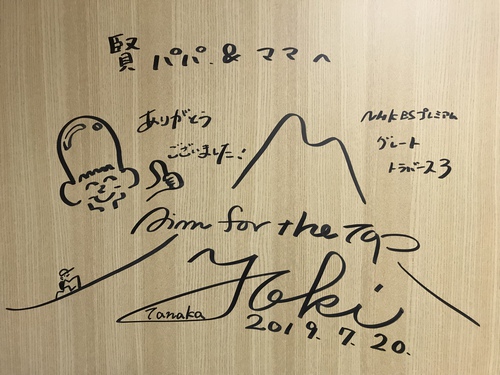 賢パパ.&ママへ
ありがとう
ございました!
NHK BSプレミアム
グレート
トラバース3
Aim for the Top
Yoki
Tanaka
2019.7.20.